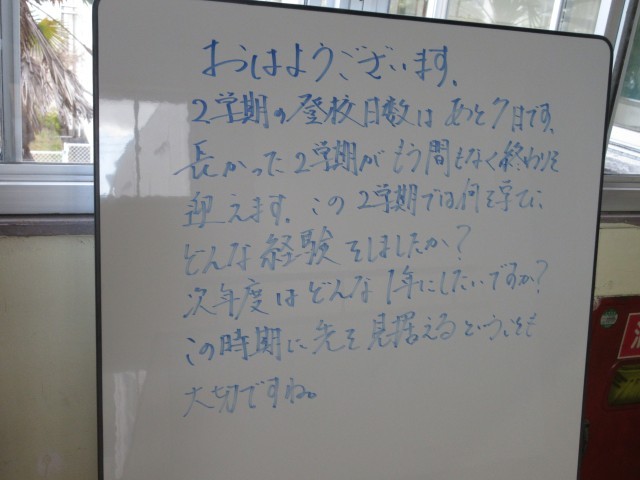 おはようございます。
2学期の登校日数はあと7日です。
長かった2学期がもう間もなく終わりを
迎えます。この2学期では何を学び、
どんな経験をしましたか？
次年度はどんな1年にしたいですか？
この時期に先を見据えるということも
大切ですね。